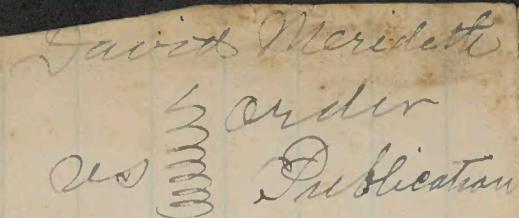 David Merideth
Order
vs Publication